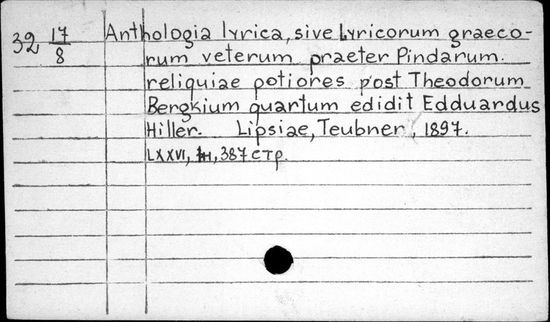 32 17/8 Anthologia lyrica, sive Lyricorum graeco-
rum veterum praeter Pindarum.
reliquiae potiores post Theodorum
Bergkium quartum edidit Edduardus
Hiller. Lipsiae, Teubner, 1897.
LXXVI, 387 стр.